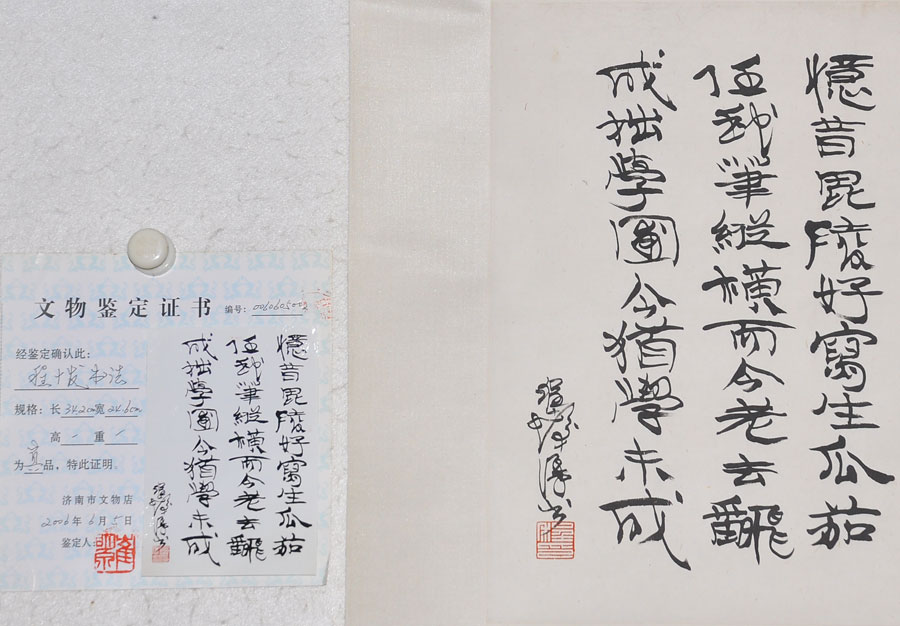 憶昔毘陵好寫生瓜茄
任我筆縱橫而今老去飜
成拙學圃今猶學未成
程十髮漫書
文物鉴定证书 编号：0060605002
经鉴定确认此：
程十发书法
规格：长34.2cm宽24.6cm
高一重一
为真品，特此证明。
济南市文物店
2006年6月5日
鉴定人：
憶昔毘陵好寫生瓜茄
任我筆縱橫而今老去飜
成拙學圃今猶學未成
程十髮漫書